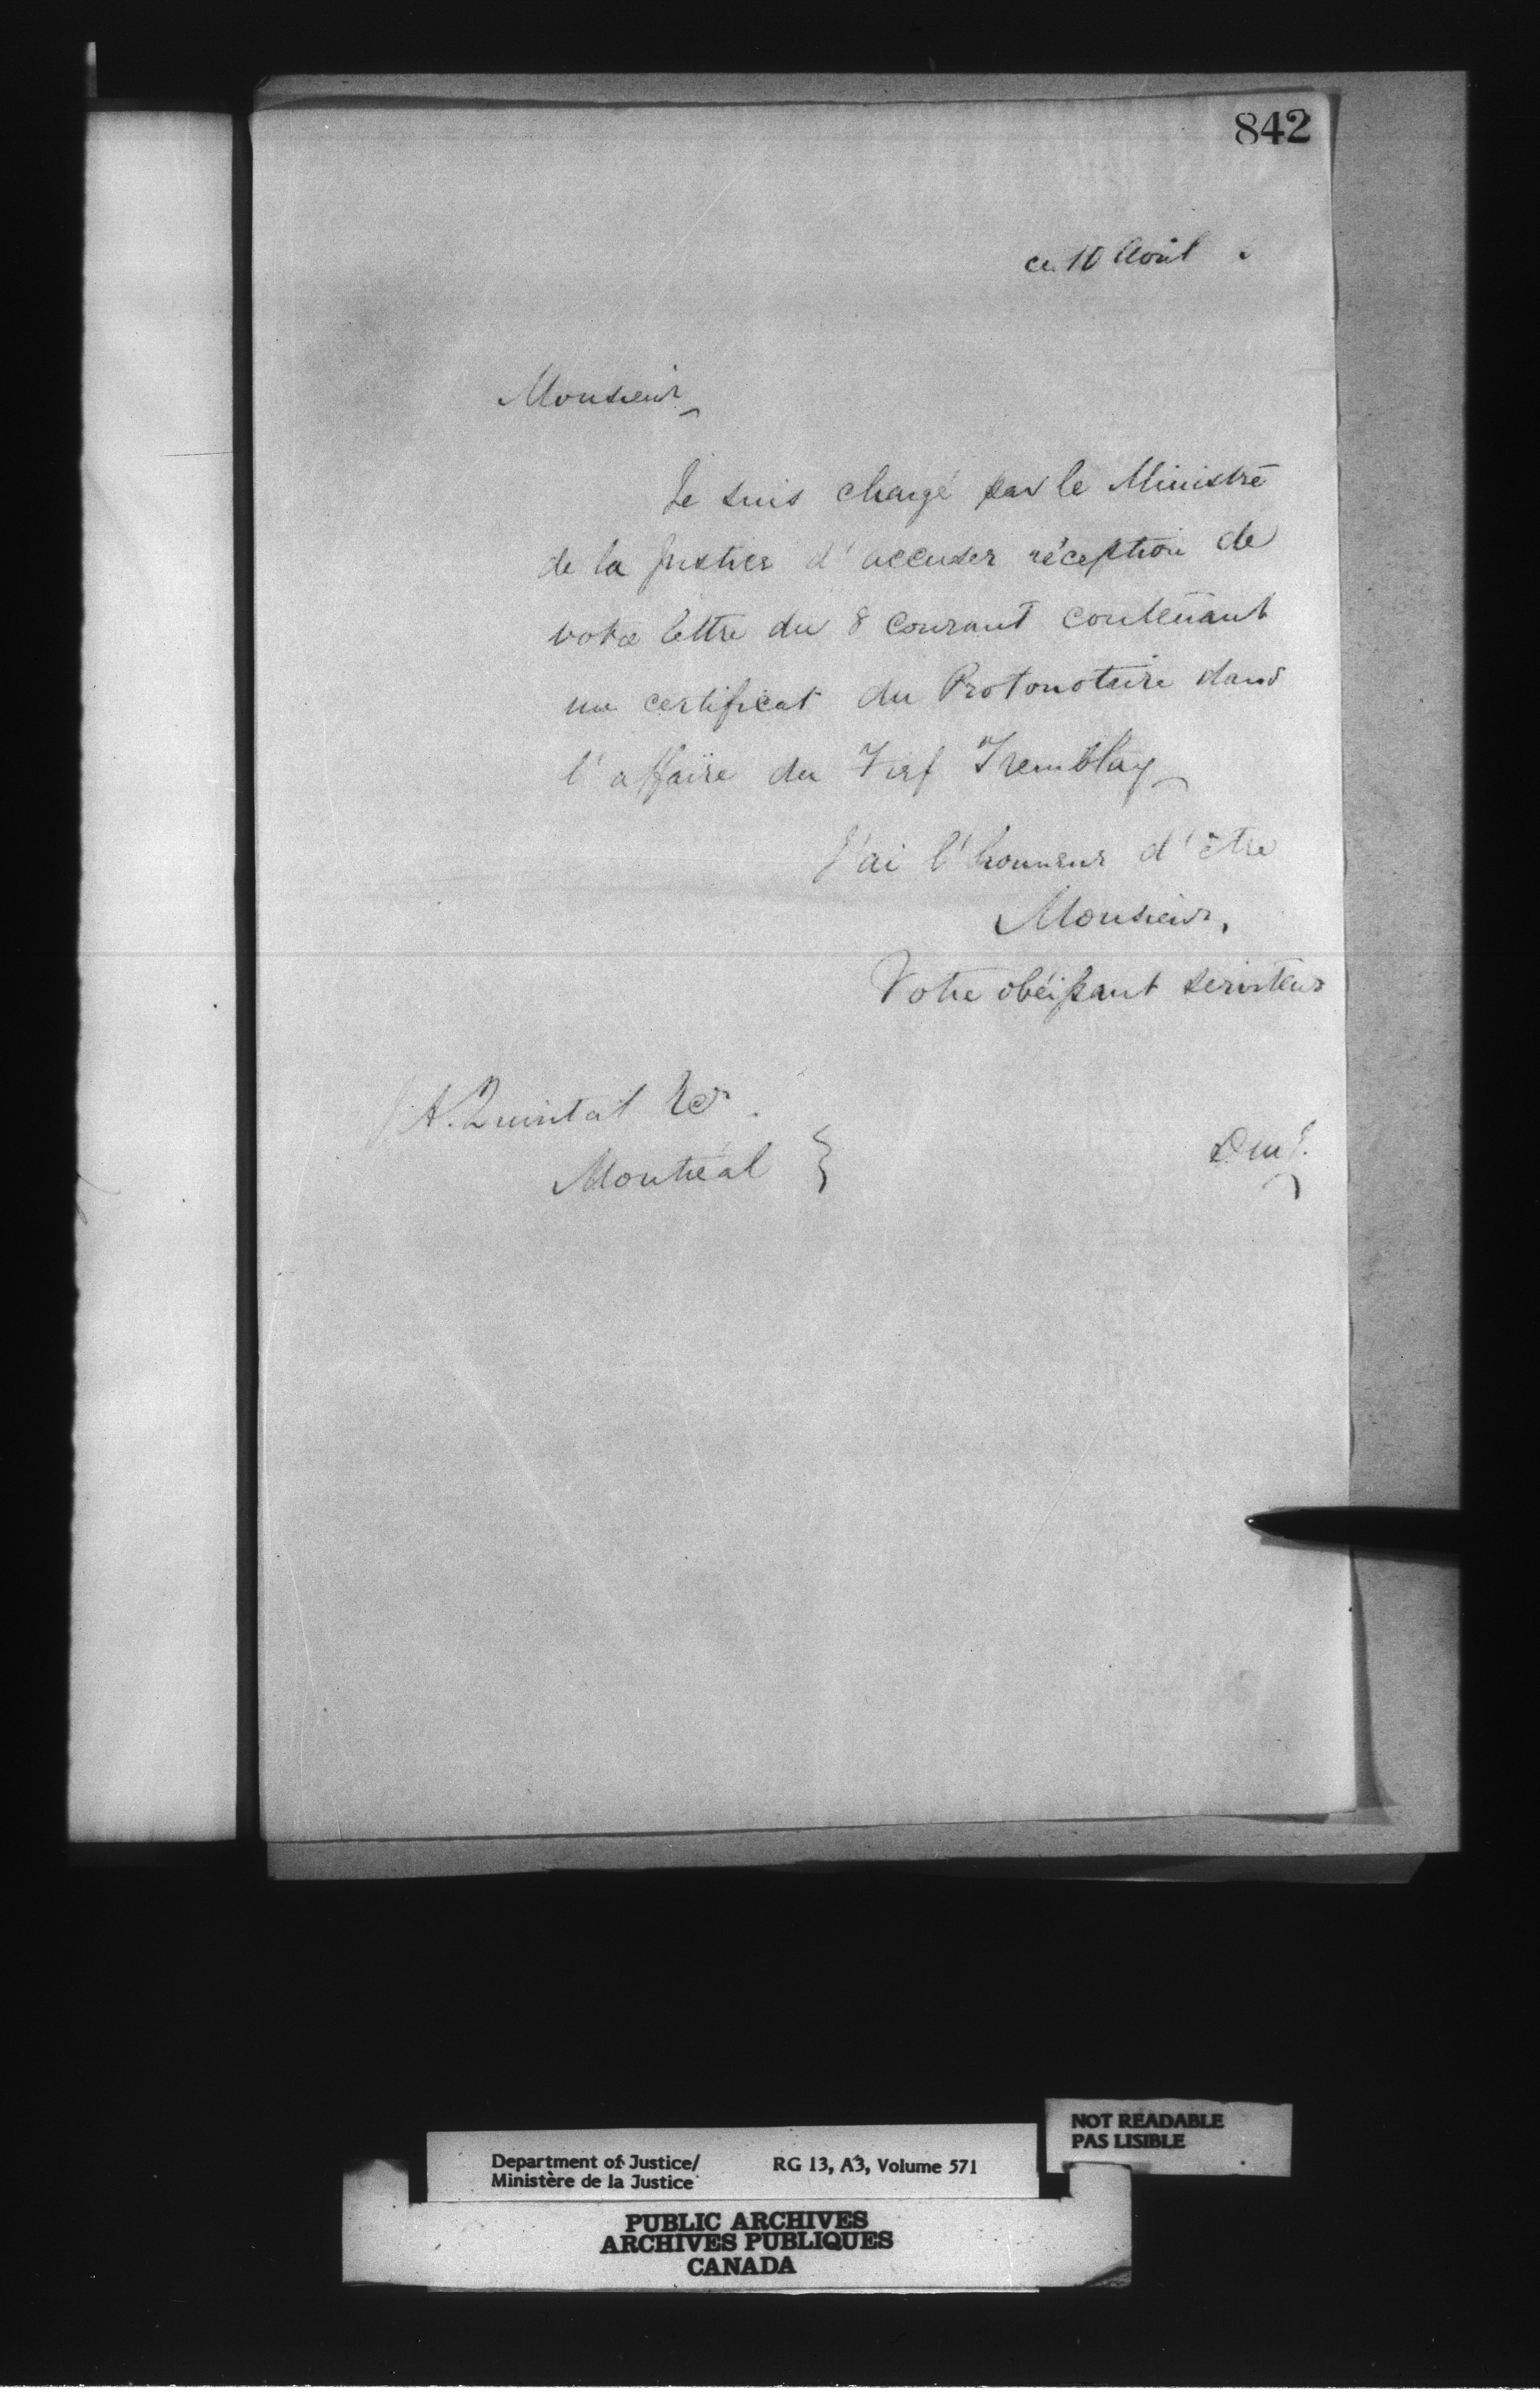 842
ce 10 Avril
Monsieur
Je suis chargé par le Ministre
de la Justice d'accuser réception de
votre lettre du 8 courant contenant
un certificat du Protonotaire dans
l'affaire du Fief Tremblay
J'ai l'honneur d'être
Monsieur,
Votre obéissant serviteur
A. Quintal
Montréal
NOT READABLE
PAS LISIBLE
Department of Justice/ RG 13, A3, Volume 571
Ministère de la Justice
PUBLIC ARCHIVES
ARCHIVES PUBLIQUES
CANADA